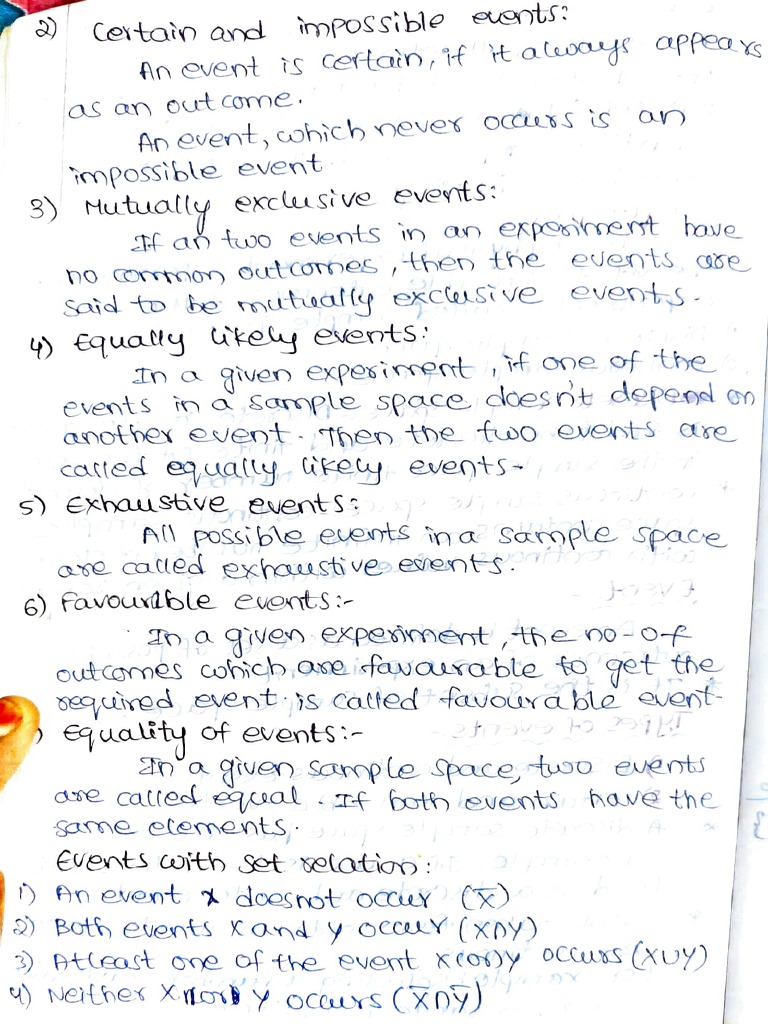 2) Certain and impossible events:
An event is certain, if it always appears
as an outcome.
An event, which never occurs is an
impossible event
3) Mutually exclusive events:
If an two events in an experiment have
no common outcomes, then the events are
said to be mutually exclusive events.
4) Equally likely events:
In a given experiment, if one of the
events in a sample space doesn't depend on
another event. Then the two events are
called equally likely events.
5) Exhaustive events:
All possible events in a sample space
are called exhaustive events.
6) Favourable events:-
In a given experiment, the no-of
outcomes which are favourable to get the
required event is called favourable event-
) Equality of events:-
In a given sample space, two events
are called equal. If both events have the
same elements.
Events with set relation:
1) An event x doesnot occur (x̄)
2) Both events x and y occur (x∩y)
3) Atleast one of the event x(or)y occurs (x∪y)
4) Neither x nor y occurs (x̄∩ȳ)